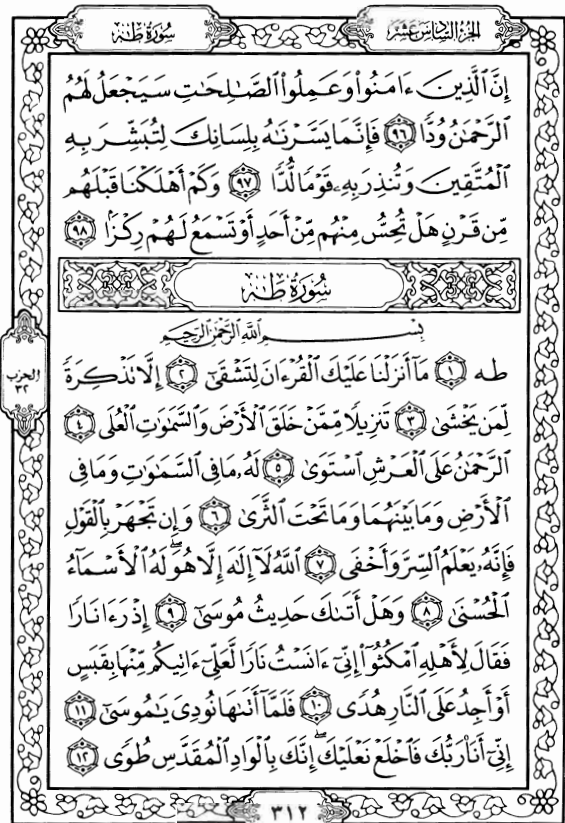 الجزء السادس عشر
سورة طه
إِنَّ ٱلَّذِينَ ءَامَنُوا۟ وَعَمِلُوا۟ ٱلصَّٰلِحَٰتِ سَيَجْعَلُ لَهُمُ
ٱلرَّحْمَٰنُ وُدًّا ٩٦ فَإِنَّمَا يَسَّرْنَٰهُ بِلِسَانِكَ لِتُبَشِّرَ بِهِ
ٱلْمُتَّقِينَ وَتُنذِرَ بِهِۦ قَوْمًا لُّدًّا ٩٧ وَكَمْ أَهْلَكْنَا قَبْلَهُم
مِّن قَرْنٍ هَلْ تُحِسُّ مِنْهُم مِّنْ أَحَدٍ أَوْ تَسْمَعُ لَهُمْ رِكْزًۢا ٩٨
سُورَةُ طه
بِسْمِ ٱللَّهِ ٱلرَّحْمَٰنِ ٱلرَّحِيمِ
طه ١ مَآ أَنزَلْنَا عَلَيْكَ ٱلْقُرْءَانَ لِتَشْقَىٰٓ ٢ إِلَّا تَذْكِرَةً
لِّمَن يَخْشَىٰ ٣ تَنزِيلًا مِّمَّنْ خَلَقَ ٱلْأَرْضَ وَٱلسَّمَٰوَٰتِ ٱلْعُلَى ٤
ٱلرَّحْمَٰنُ عَلَى ٱلْعَرْشِ ٱسْتَوَىٰ ٥ لَهُۥ مَا فِى ٱلسَّمَٰوَٰتِ وَمَا فِى
ٱلْأَرْضِ وَمَا بَيْنَهُمَا وَمَا تَحْتَ ٱلثَّرَىٰ ٦ وَإِن تَجْهَرْ بِٱلْقَوْلِ
فَإِنَّهُۥ يَعْلَمُ ٱلسِّرَّ وَأَخْفَى ٧ ٱللَّهُ لَآ إِلَٰهَ إِلَّا هُوَ ۖ لَهُ ٱلْأَسْمَآءُ
ٱلْحُسْنَىٰ ٨ وَهَلْ أَتَىٰكَ حَدِيثُ مُوسَىٰٓ ٩ إِذْ رَءَا نَارًا
فَقَالَ لِأَهْلِهِ ٱمْكُثُوٓا۟ إِنِّىٓ ءَانَسْتُ نَارًا لَّعَلِّىٓ ءَاتِيكُم مِّنْهَا بِقَبَسٍ
أَوْ أَجِدُ عَلَى ٱلنَّارِ هُدًى ١٠ فَلَمَّآ أَتَىٰهَا نُودِىَ يَٰمُوسَىٰٓ ١١
إِنِّىٓ أَنَا۠ رَبُّكَ فَٱخْلَعْ نَعْلَيْكَ ۖ إِنَّكَ بِٱلْوَادِ ٱلْمُقَدَّسِ طُوًى ١٢
الحزب
٣٢
٣١٢